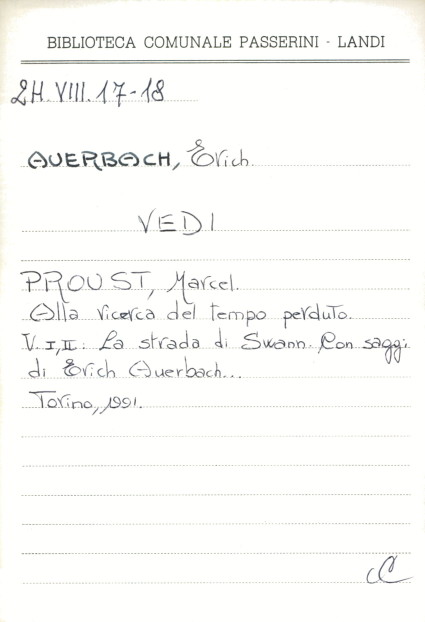 BIBLIOTECA COMUNALE PASSERINI - LANDI
2H.VIII.17-18
AUERBACH, Erich.
VEDI
PROUST, Marcel.
Alla ricerca del tempo perduto.
V. I, II: La strada di Swann. Con saggi
di Erich Auerbach...
Torino, 1991.
C